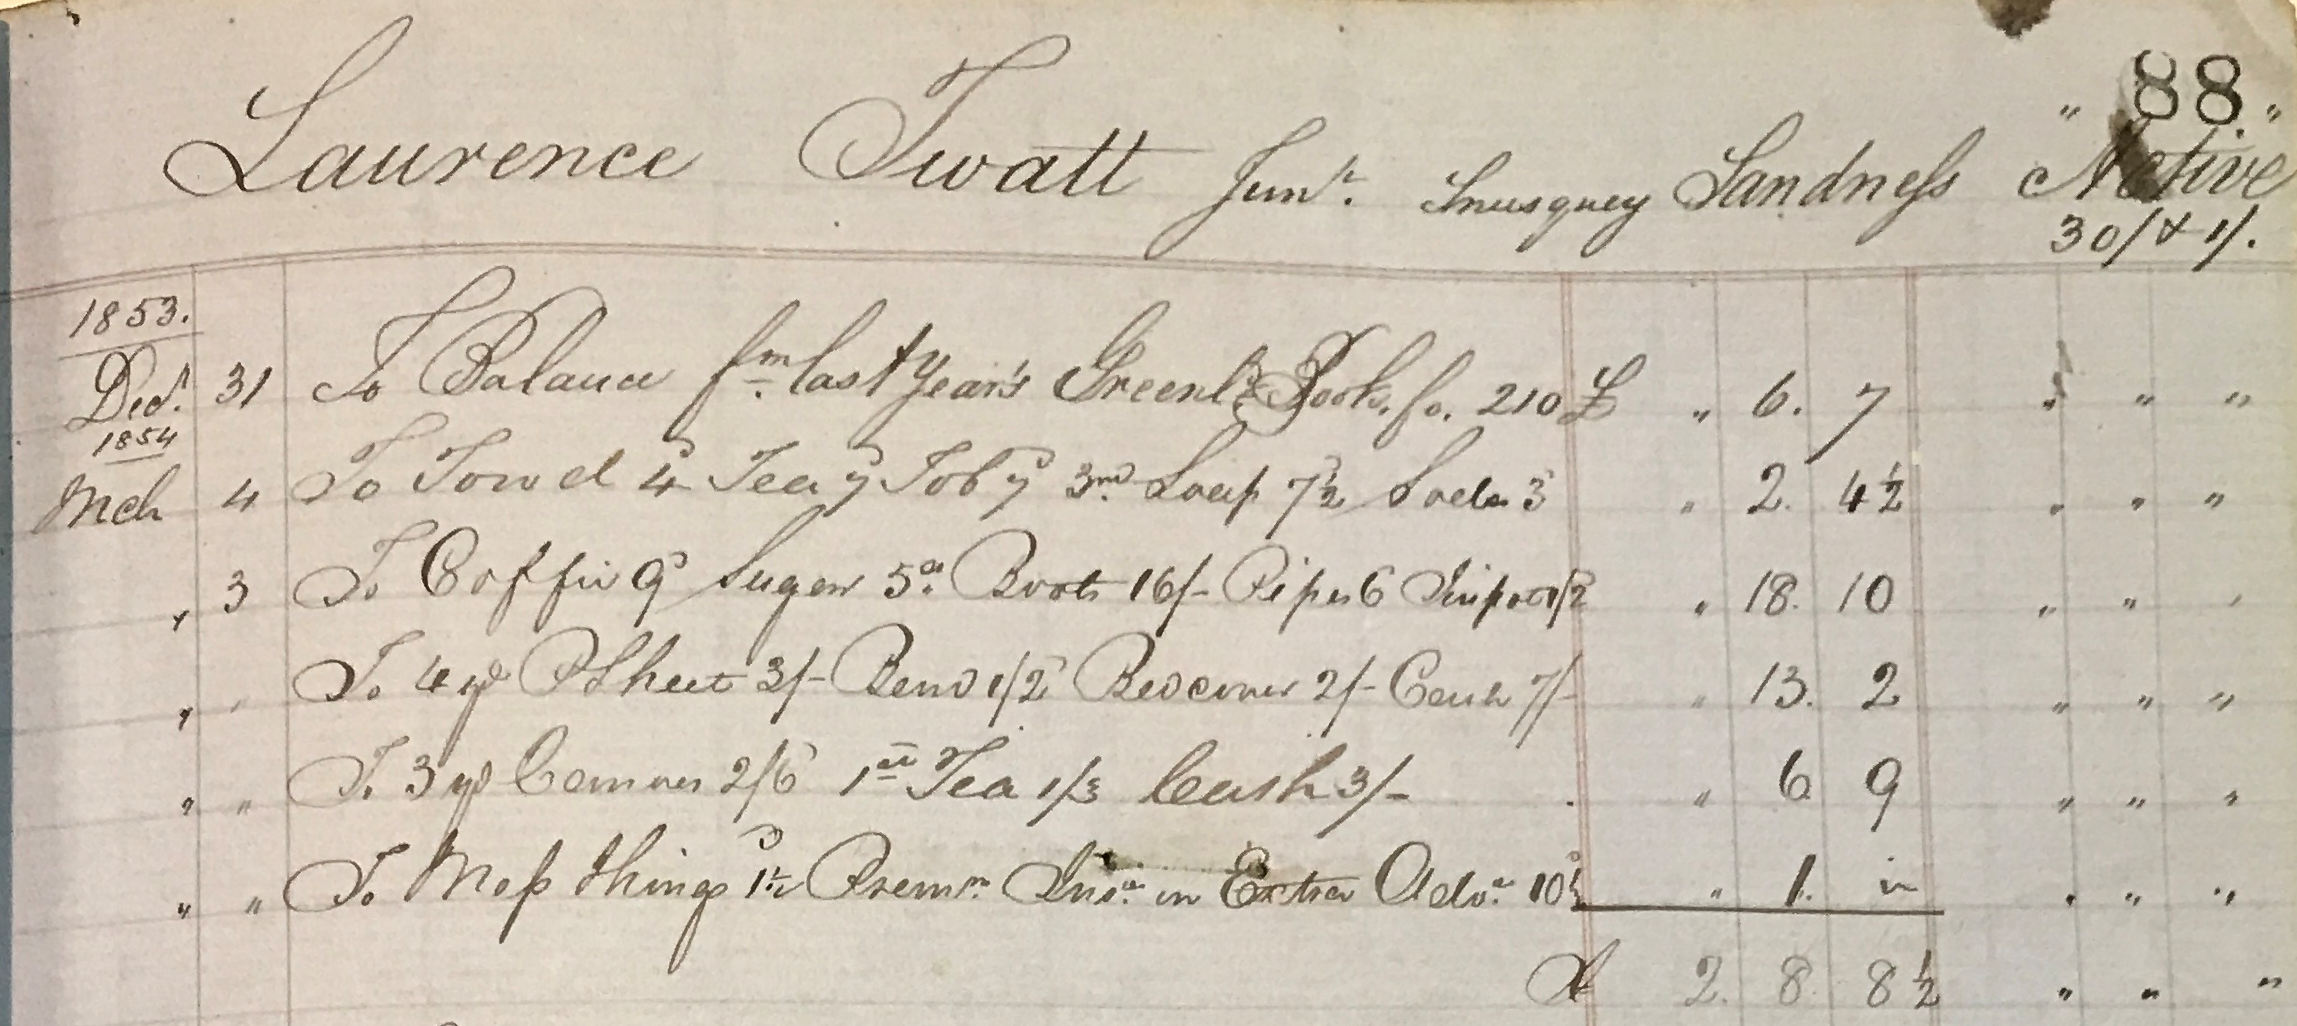 " 88. "
Laurence Twatt Junr. Snusquey Sandness Active
30/ & 1/.
1853.
Decr. 31 To Balance fm last Year's Greenld Book. fo. 210 £ " 6. 7 " " "
1854
Mch 4 To Towel 4d Tea 9 Tob 9 3rd Soap 7½ Soda 3 " 2. 4½ " " "
" 3 To Coffin 9d Sugar 5d Boots 16/- Pipes 6 1/2 " 18. 10 " " "
" " To 4 yd Sheet 3/- Bend 1/2 Bedcover 2/- Cash 7/- " 13. 2 " " "
" " To 3 yd Canvas 2/6 1 Tea 1/3 Cash 3/- " 6 9 " " "
" " To Mess things 1½ Premm. Insce in Extra Advce 10½ " 1. " " " "
£ 2. 8. 8½ " " "